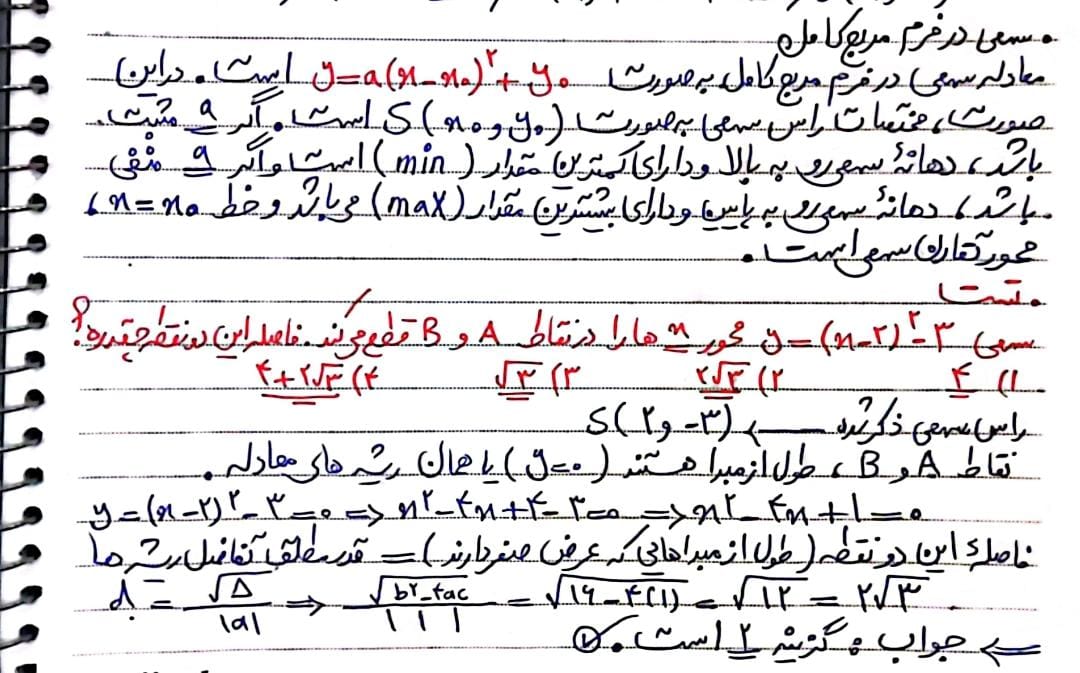 • سهمی در فرم مربع کامل
معادله سهمی در فرم مربع کامل به صورت y=a(x-x₀)²+y₀ است. در این
صورت، مختصات راس سهمی به صورت S(x₀ و y₀) است. اگر a مثبت
باشد، دهانهٔ سهمی رو به بالا و دارای کمترین مقدار (min) است و اگر a منفی
باشد، دهانهٔ سهمی رو به پایین و دارای بیشترین مقدار (max) می باشد و خط x=x₀،
محور تقارن سهمی است.
• تست
سهمی y=(x-۲)²-۳ محور x ها را در نقاط A و B قطع می کند. فاصله این دو نقطه چقدره؟
۱) ۴ ۲) ۲√۳ ۳) √۳ ۴) ۴+۲√۳
راس سهمی ذکر شده ← S(۲ و -۳)
نقاط A و B، طول از مبدا هستند (y=۰) یا همان ریشه های معادله.
y=(x-۲)²-۳=۰ => x²-۴x+۴-۳=۰ => x²-۴x+۱=۰
فاصلهٔ این دو نقطه (طول از مبداهایی که عرض صفر دارند) = قدر مطلق تفاضل ریشه ها
d = √Δ/|a| => √b²-۴ac/|۱| = √۱۶-۴(۱) = √۱۲ = ۲√۳
<= جواب: گزینه ۲ است.